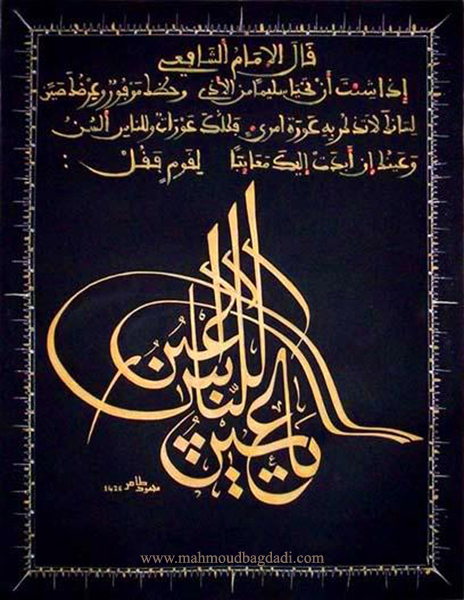 قال الإمام الشافعي
إذا شئت أن تحيا سليما من الأذى وحظك موفور وعرضك صين
لسانك لا تذكر به عورة امرئ فكلك عورات وللناس ألسن
وعينك إن أبدت إليك معايبا لقوم فقل :
يا عين للناس أعين
محمود طاهر
www.mahmoudbagdadi.com